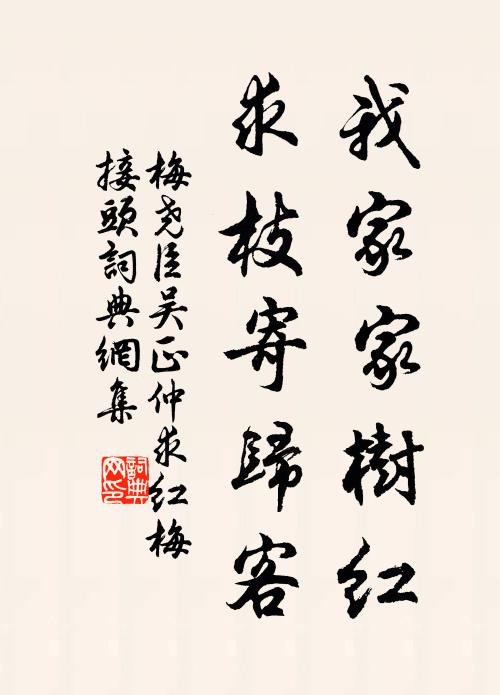 我家家樹紅
求枝寄歸客
梅堯臣吴正仲求红梅
接頭詞典網集
詞典
网印